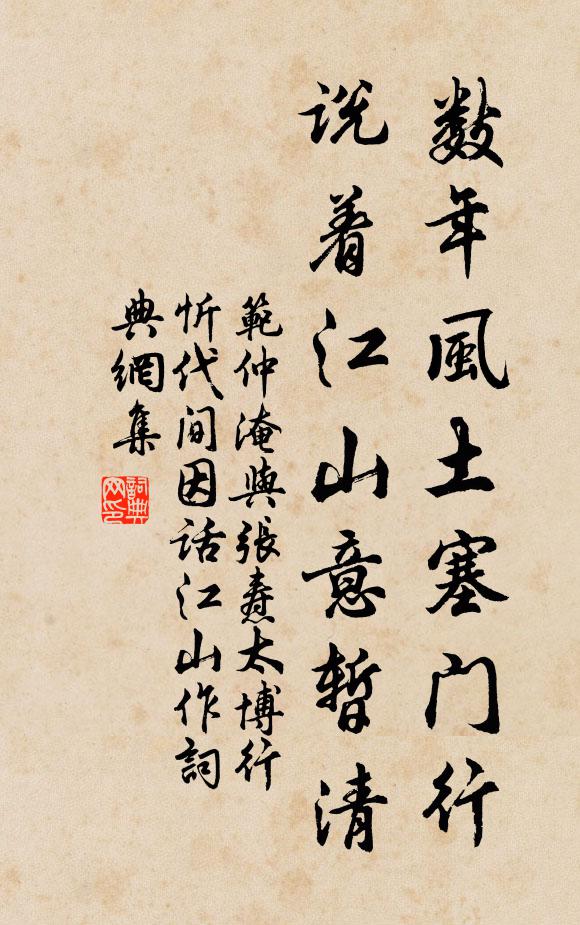 數年風土塞門行
說着江山意暫清
範仲淹與張燾太博行
忻代間因話江山作詞
典網集
詞典
网印